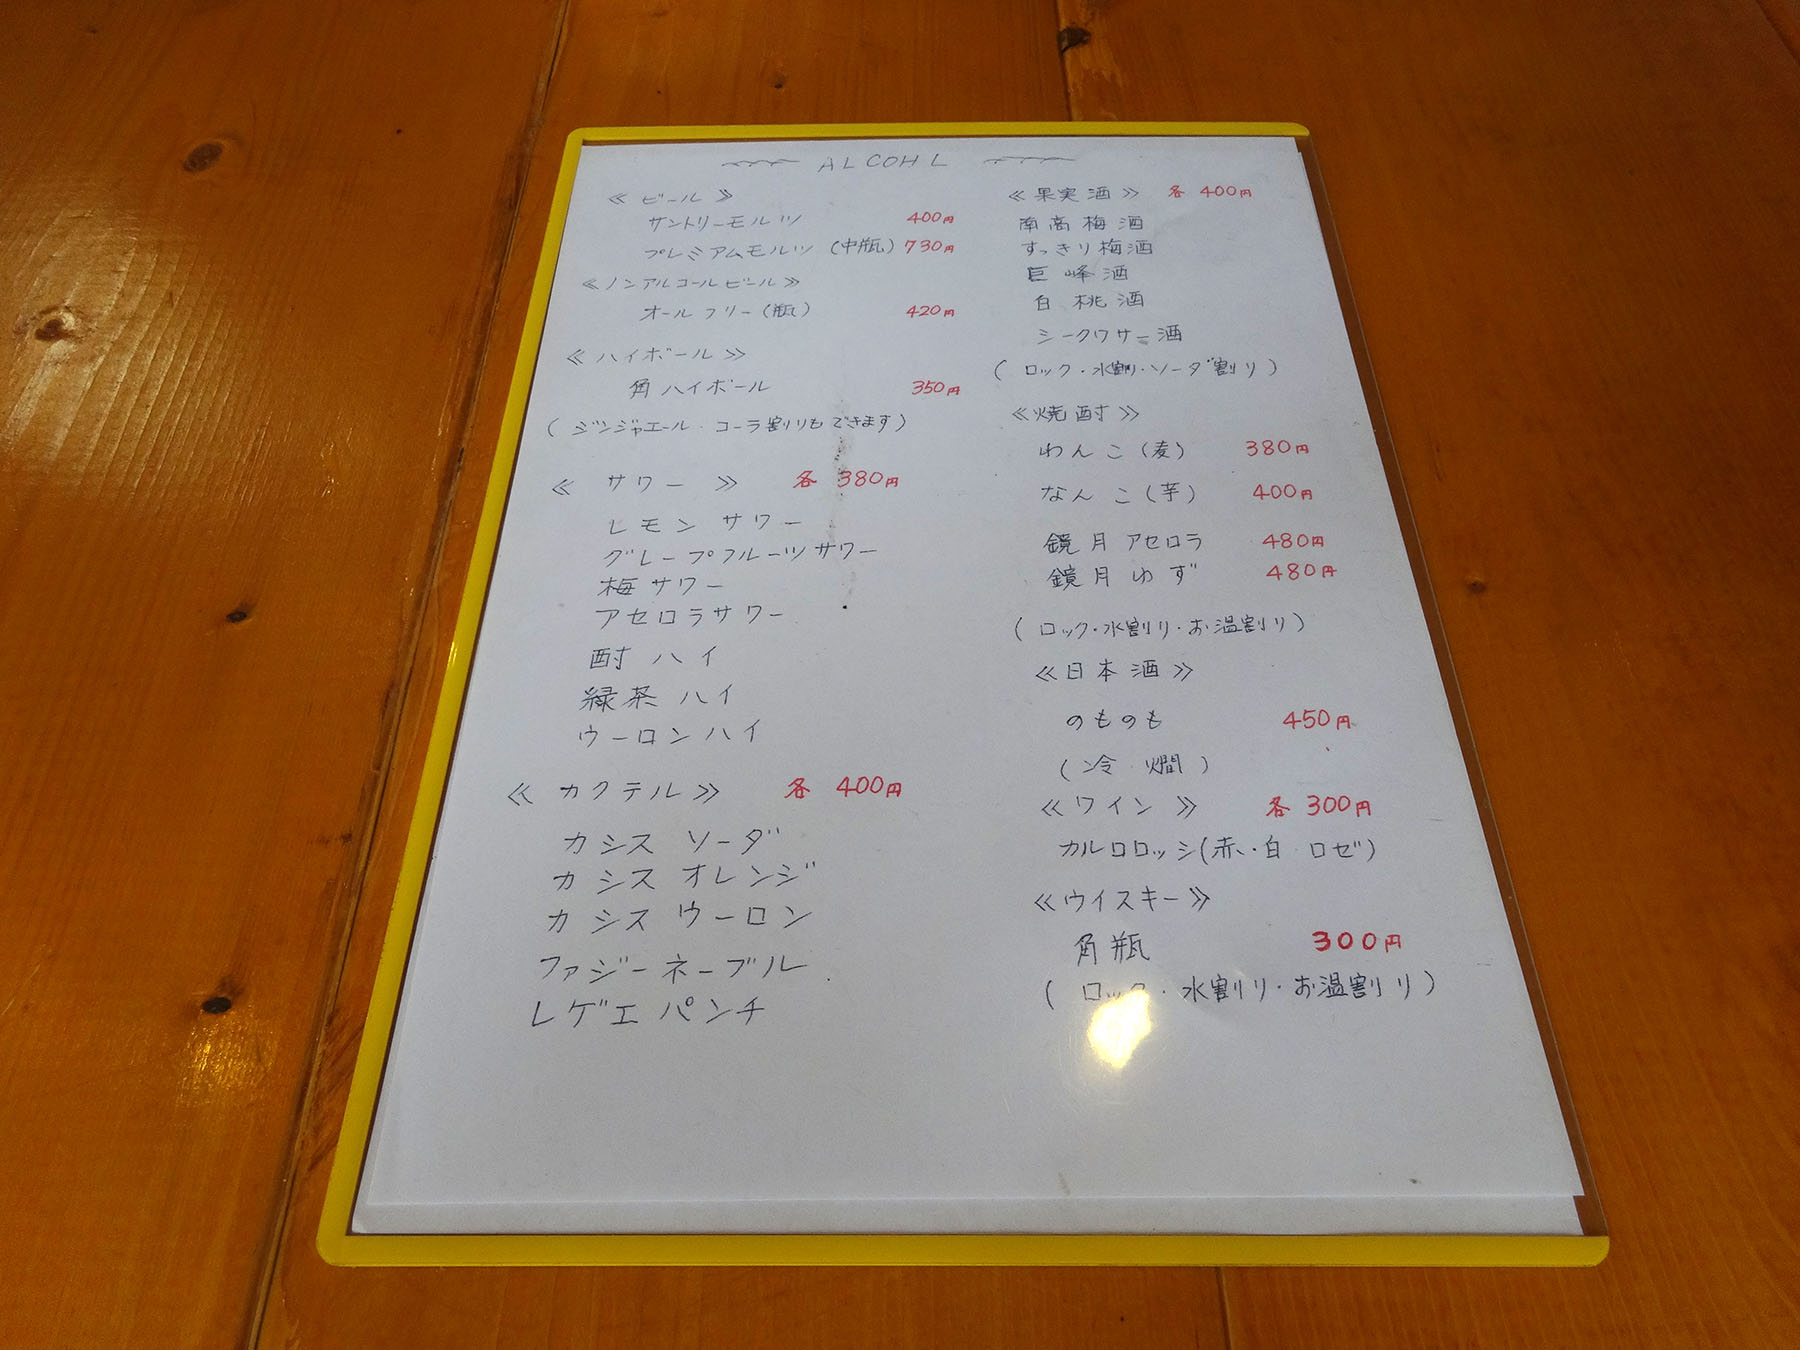 ALCOHL
≪ ビール ≫
サントリーモルツ 400円
プレミアムモルツ (中瓶) 730円
≪ノンアルコールビール≫
オールフリー(瓶) 420円
≪ハイボール≫
角ハイボール 350円
(ジンジャエール・コーラ割りもできます)
≪ サワー ≫ 各 380円
レモンサワー
グレープフルーツサワー
梅サワー
アセロラサワー
酎ハイ
緑茶ハイ
ウーロンハイ
≪ カクテル ≫ 各 400円
カシスソーダ
カシスオレンジ
カシスウーロン
ファジーネーブル
レゲエパンチ
≪果実酒≫ 各 400円
南高梅酒
すっきり梅酒
巨峰酒
白桃酒
シークワサー酒
(ロック・水割り・ソーダ割り)
≪焼酎≫
わんこ(麦) 380円
なんこ(芋) 400円
鏡月アセロラ 480円
鏡月ゆず 480円
(ロック・水割り・お温割り)
≪日本酒≫
のものも 450円
(冷・燗)
≪ワイン≫ 各 300円
カルロロッシ(赤・白・ロゼ)
≪ウイスキー≫
角瓶 300円
(ロック・水割り・お温割り)